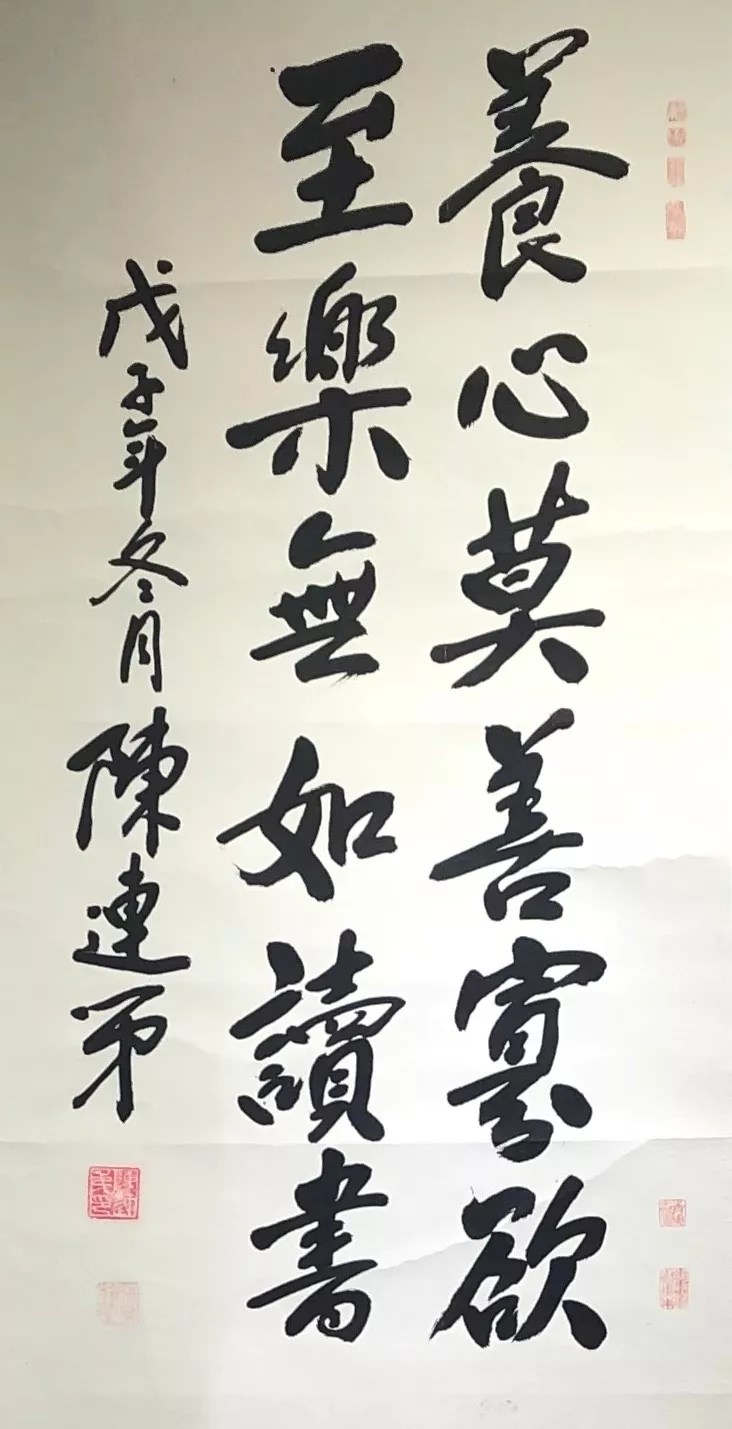 養心莫善寡欲
至樂無如讀書
戊子年冬月陳連弟